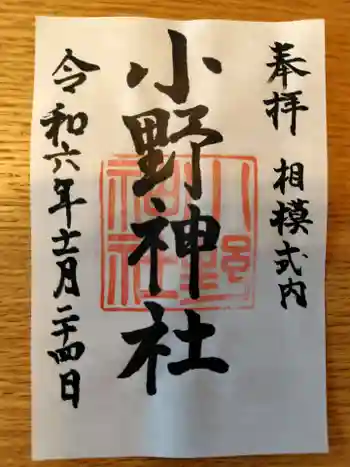 奉拝 相模式内
小野神社
令和六年十二月二十四日
小野神社